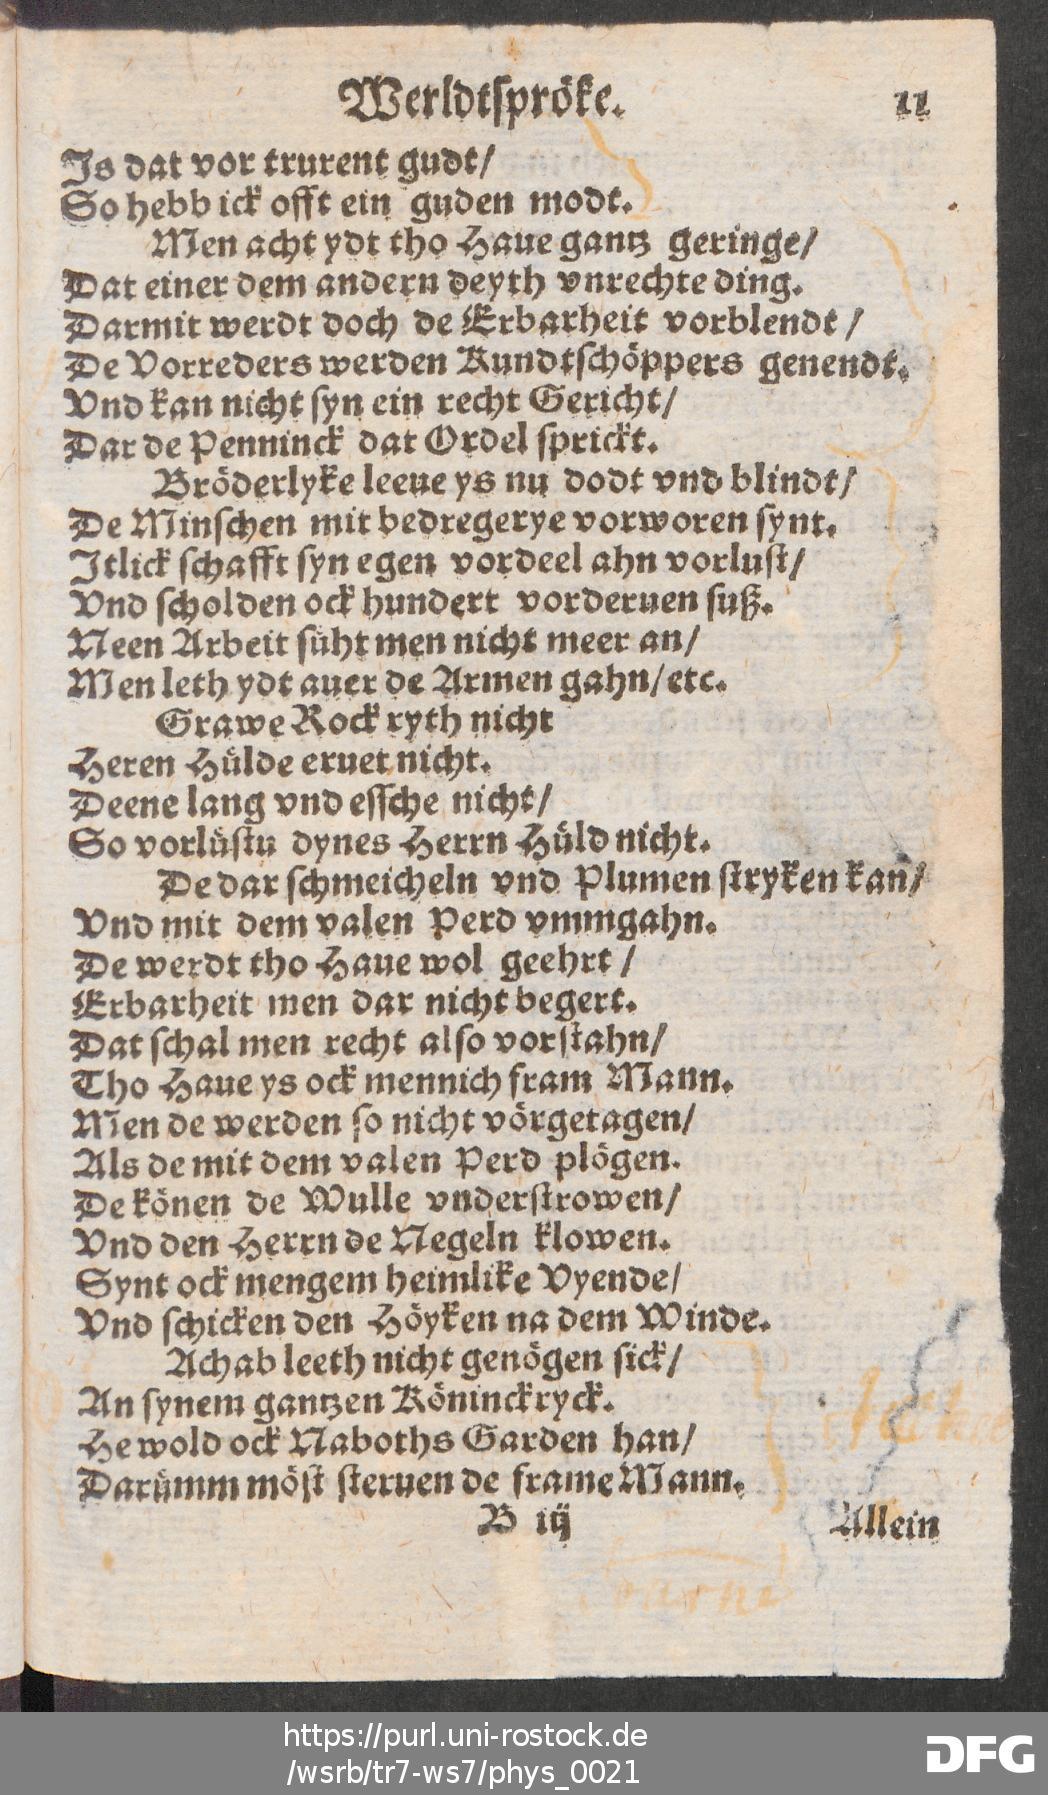 Werldtspröke. 11
Is dat vor trurent gudt/
So hebb ick offt ein guden modt.
Men acht ydt tho Haue gantz geringe/
Dat einer dem andern deyth vnrechte ding.
Darmit werdt doch de Erbarheit vorblendt /
De Vorreders werden Kundtschöppers genendt.
Vnd kan nicht syn ein recht Gericht/
Dar de Penninck dat Ordel sprickt.
Bröderlyke leeue ys nu dodt vnd blindt/
De Minschen mit bedregerye vorworen synt.
Itlick schafft syn egen vordeel ahn vorlust/
Vnd scholden ock hundert vorderuen suß.
Neen Arbeit süht men nicht meer an/
Men leth ydt auer de Armen gahn/etc.
Grawe Rock ryth nicht
Heren Hülde eruet nicht.
Deene lang vnd essche nicht/
So vorlüstu dynes Herrn Hüld nicht.
De dar schmeicheln vnd Plumen stryken kan/
Vnd mit dem valen Perd vmmgahn.
De werdt tho Haue wol geehrt /
Erbarheit men dar nicht begert.
Dat schal men recht also vorstahn/
Tho Haue ys ock mennich fram Mann.
Men de werden so nicht vörgetagen/
Als de mit dem valen Perd plögen.
De könen de Wulle vnderstrowen/
Vnd den Herrn de Negeln klowen.
Synt ock mengem heimlike Vyende/
Vnd schicken den Höyken na dem Winde.
Achab leeth nicht genögen sick/
An synem gantzen Köninckryck.
He wold ock Naboths Garden han/
Darümm möst steruen de frame Mann.
B iij Allein
https://purl.uni-rostock.de
/wsrb/tr7-ws7/phys_0021
DFG